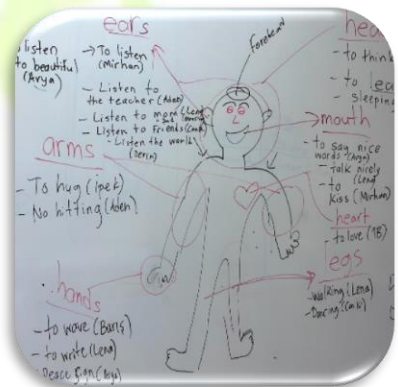 ears
listen
to beautiful
(Arya)
→ To listen
(Mirhan)
- Listen to
the teacher (Aden)
- Listen to mom (Lena)
- Listen to friends (Can K)
- Listen the world
(Derin)
forehead
hea
- to think
- to
sleeping
mouth
- to say nice
words (Arya)
- Talk nicely
(Lena)
- to
kiss (Mirhan)
heart
- to love (1B)
arms
- To hug (ipek)
- No hitting (Aden)
egs
- Walking (Lena)
- Dancing (Can K)
hands
- to wave (Barıs)
- to write (Lena)
- Peace sign (Arya)